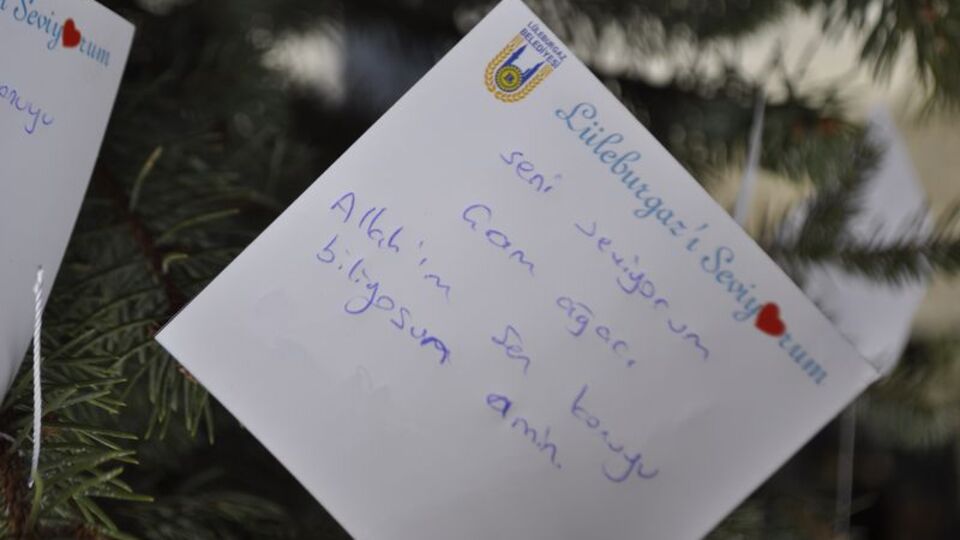 i Seviyorum
konuyu
LÜLEBURGAZ
BELEDİYESİ
Lüleburgaz'ı Seviyorum
seni seviyorum
Çam ağacı
Allah'ım sen konuyu
biliyosun amin.